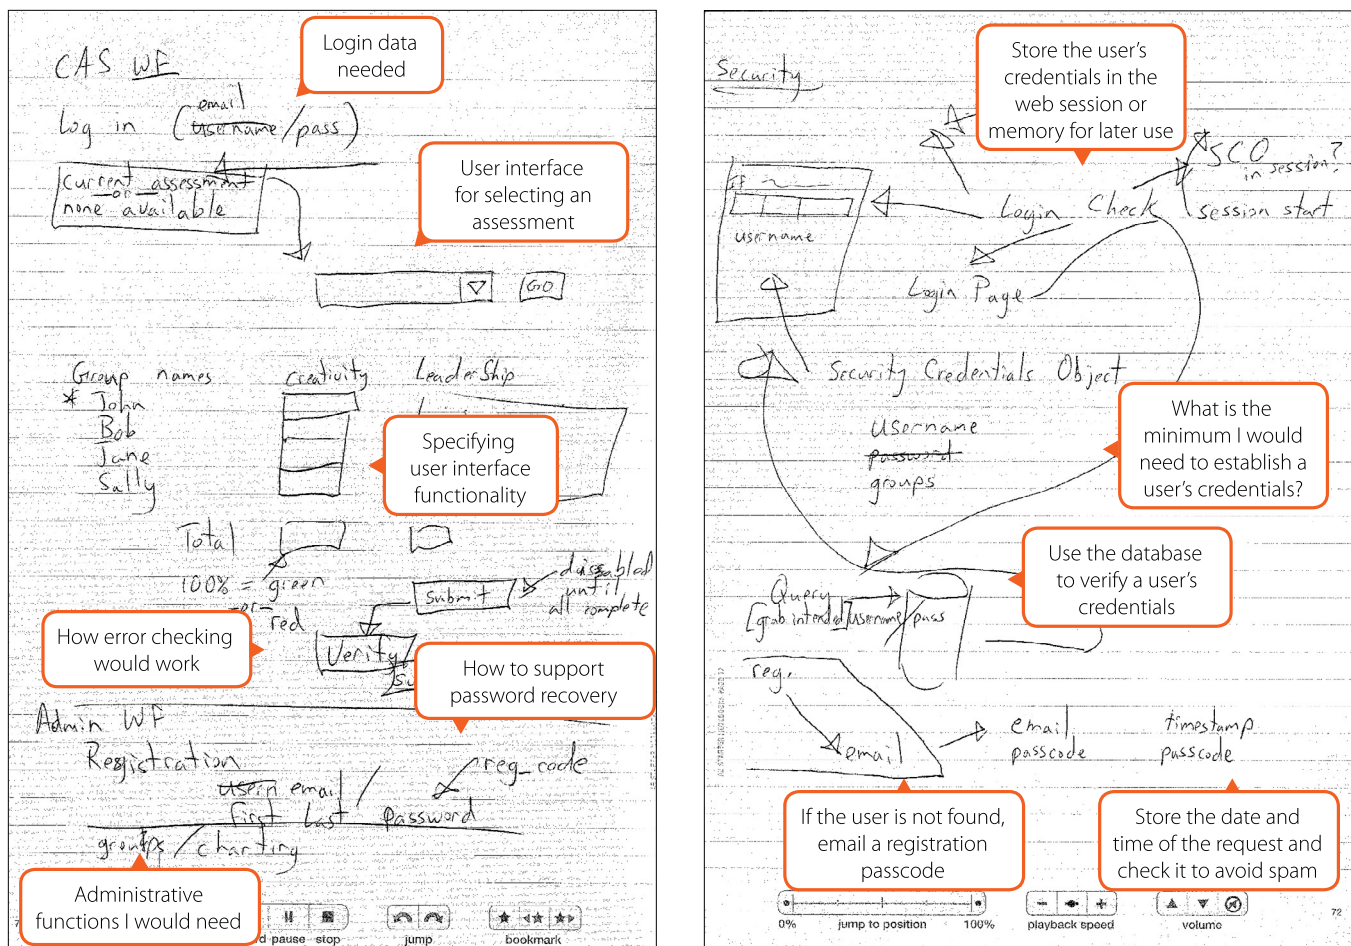 CAS WF
Login data
needed
email
Log in (username/pass)
current assessment
or
none available
User interface
for selecting an
assessment
GO
Group names
creativity
LeaderShip
* John
Bob
Jane
Sally
Specifying
user interface
functionality
Total
100% = green
-or-
red
Submit
dissabled
until
all complete
How error checking
would work
Verify
How to support
password recovery
Admin WF
Registration
reg_code
email /
First Last
password
groups / charting
Administrative
functions I would need
pause stop
jump
bookmark
Security
Store the user's
credentials in the
web session or
memory for later use
SCO
in session?
If
username
Login Check
session start
Login Page
Security Credentials Object
username
password
groups
What is the
minimum I would
need to establish a
user's credentials?
Use the database
to verify a user's
credentials
Query
[grab intended] username/pass
reg.
email
email
passcode
timestamp
passcode
If the user is not found,
email a registration
passcode
Store the date and
time of the request and
check it to avoid spam
0% jump to position 100%
playback speed
volume
72